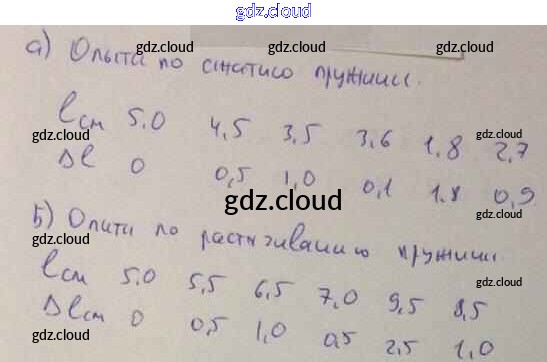 gdz.cloud
а) Опыты по сжатию пружины.
lсм 5,0 4,5 3,5 3,6 1,8 2,7
Δl 0 0,5 1,0 0,1 1,8 0,9
б) Опыты по растягиванию пружины.
lсм 5,0 5,5 6,5 7,0 9,5 8,5
Δlсм 0 0,5 1,0 0,5 2,5 1,0
gdz.cloud
gdz.cloud
gdz.cloud
gdz.cloud
gdz.cloud
gdz.cloud
gdz.cloud
gdz.cloud
gdz.cloud
gdz.cloud
gdz.cloud